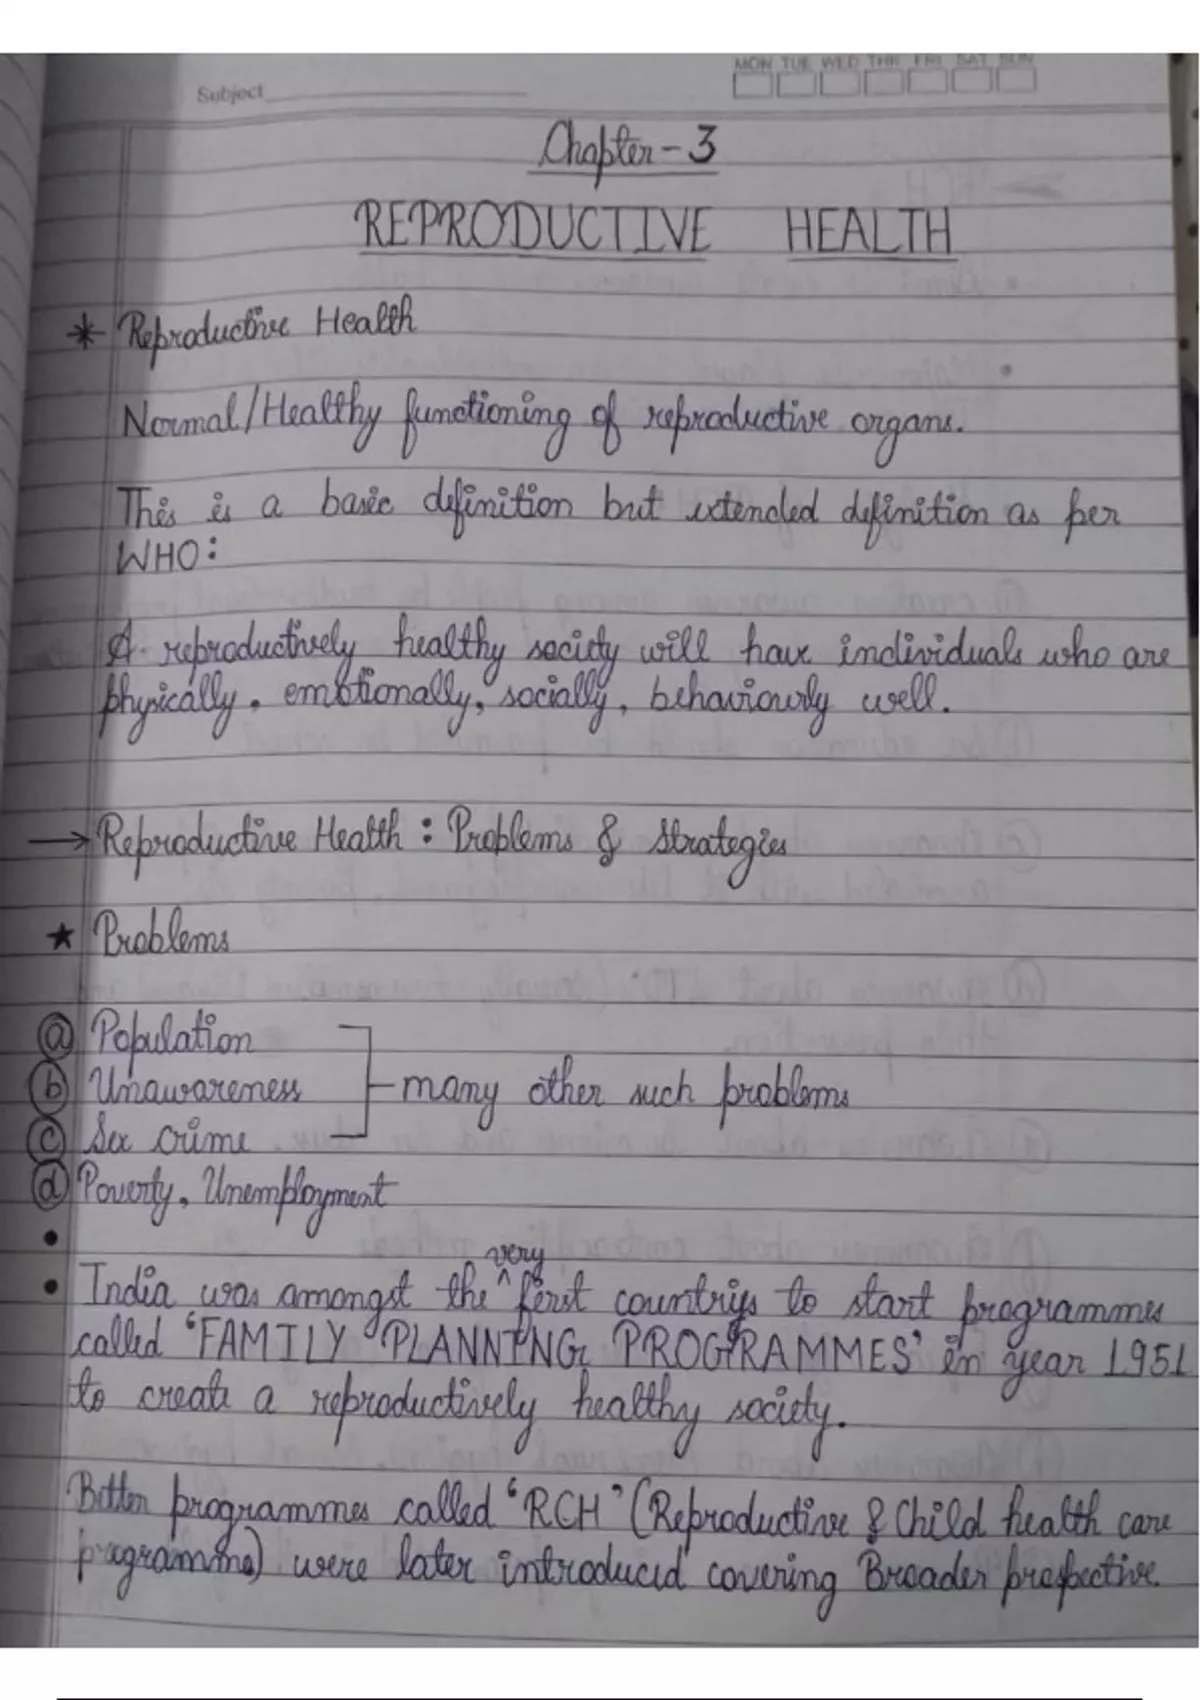 Subject
MON TUE WED THR FRI SAT SUN
Chapter-3
REPRODUCTIVE HEALTH
* Reproductive Health
Normal/Healthy functioning of reproductive organs.
This is a basic definition but extended definition as per
WHO:
A reproductively healthy society will have individuals who are
physically, emotionally, socially, behaviourly well.
→ Reproductive Health : Problems & Strategies
★ Problems
ⓐ Population
ⓑ Unawareness
ⓒ Sex crime
many other such problems
ⓓ Poverty, Unemployment
•
• India was amongst the very first countrys to start programmes
called 'FAMILY PLANNING PROGRAMMES' in year 1951
to create a reproductively healthy society.
Better programmes called 'RCH' (Reproductive & Child health care
programme) were later introduced covering Broader prespective.